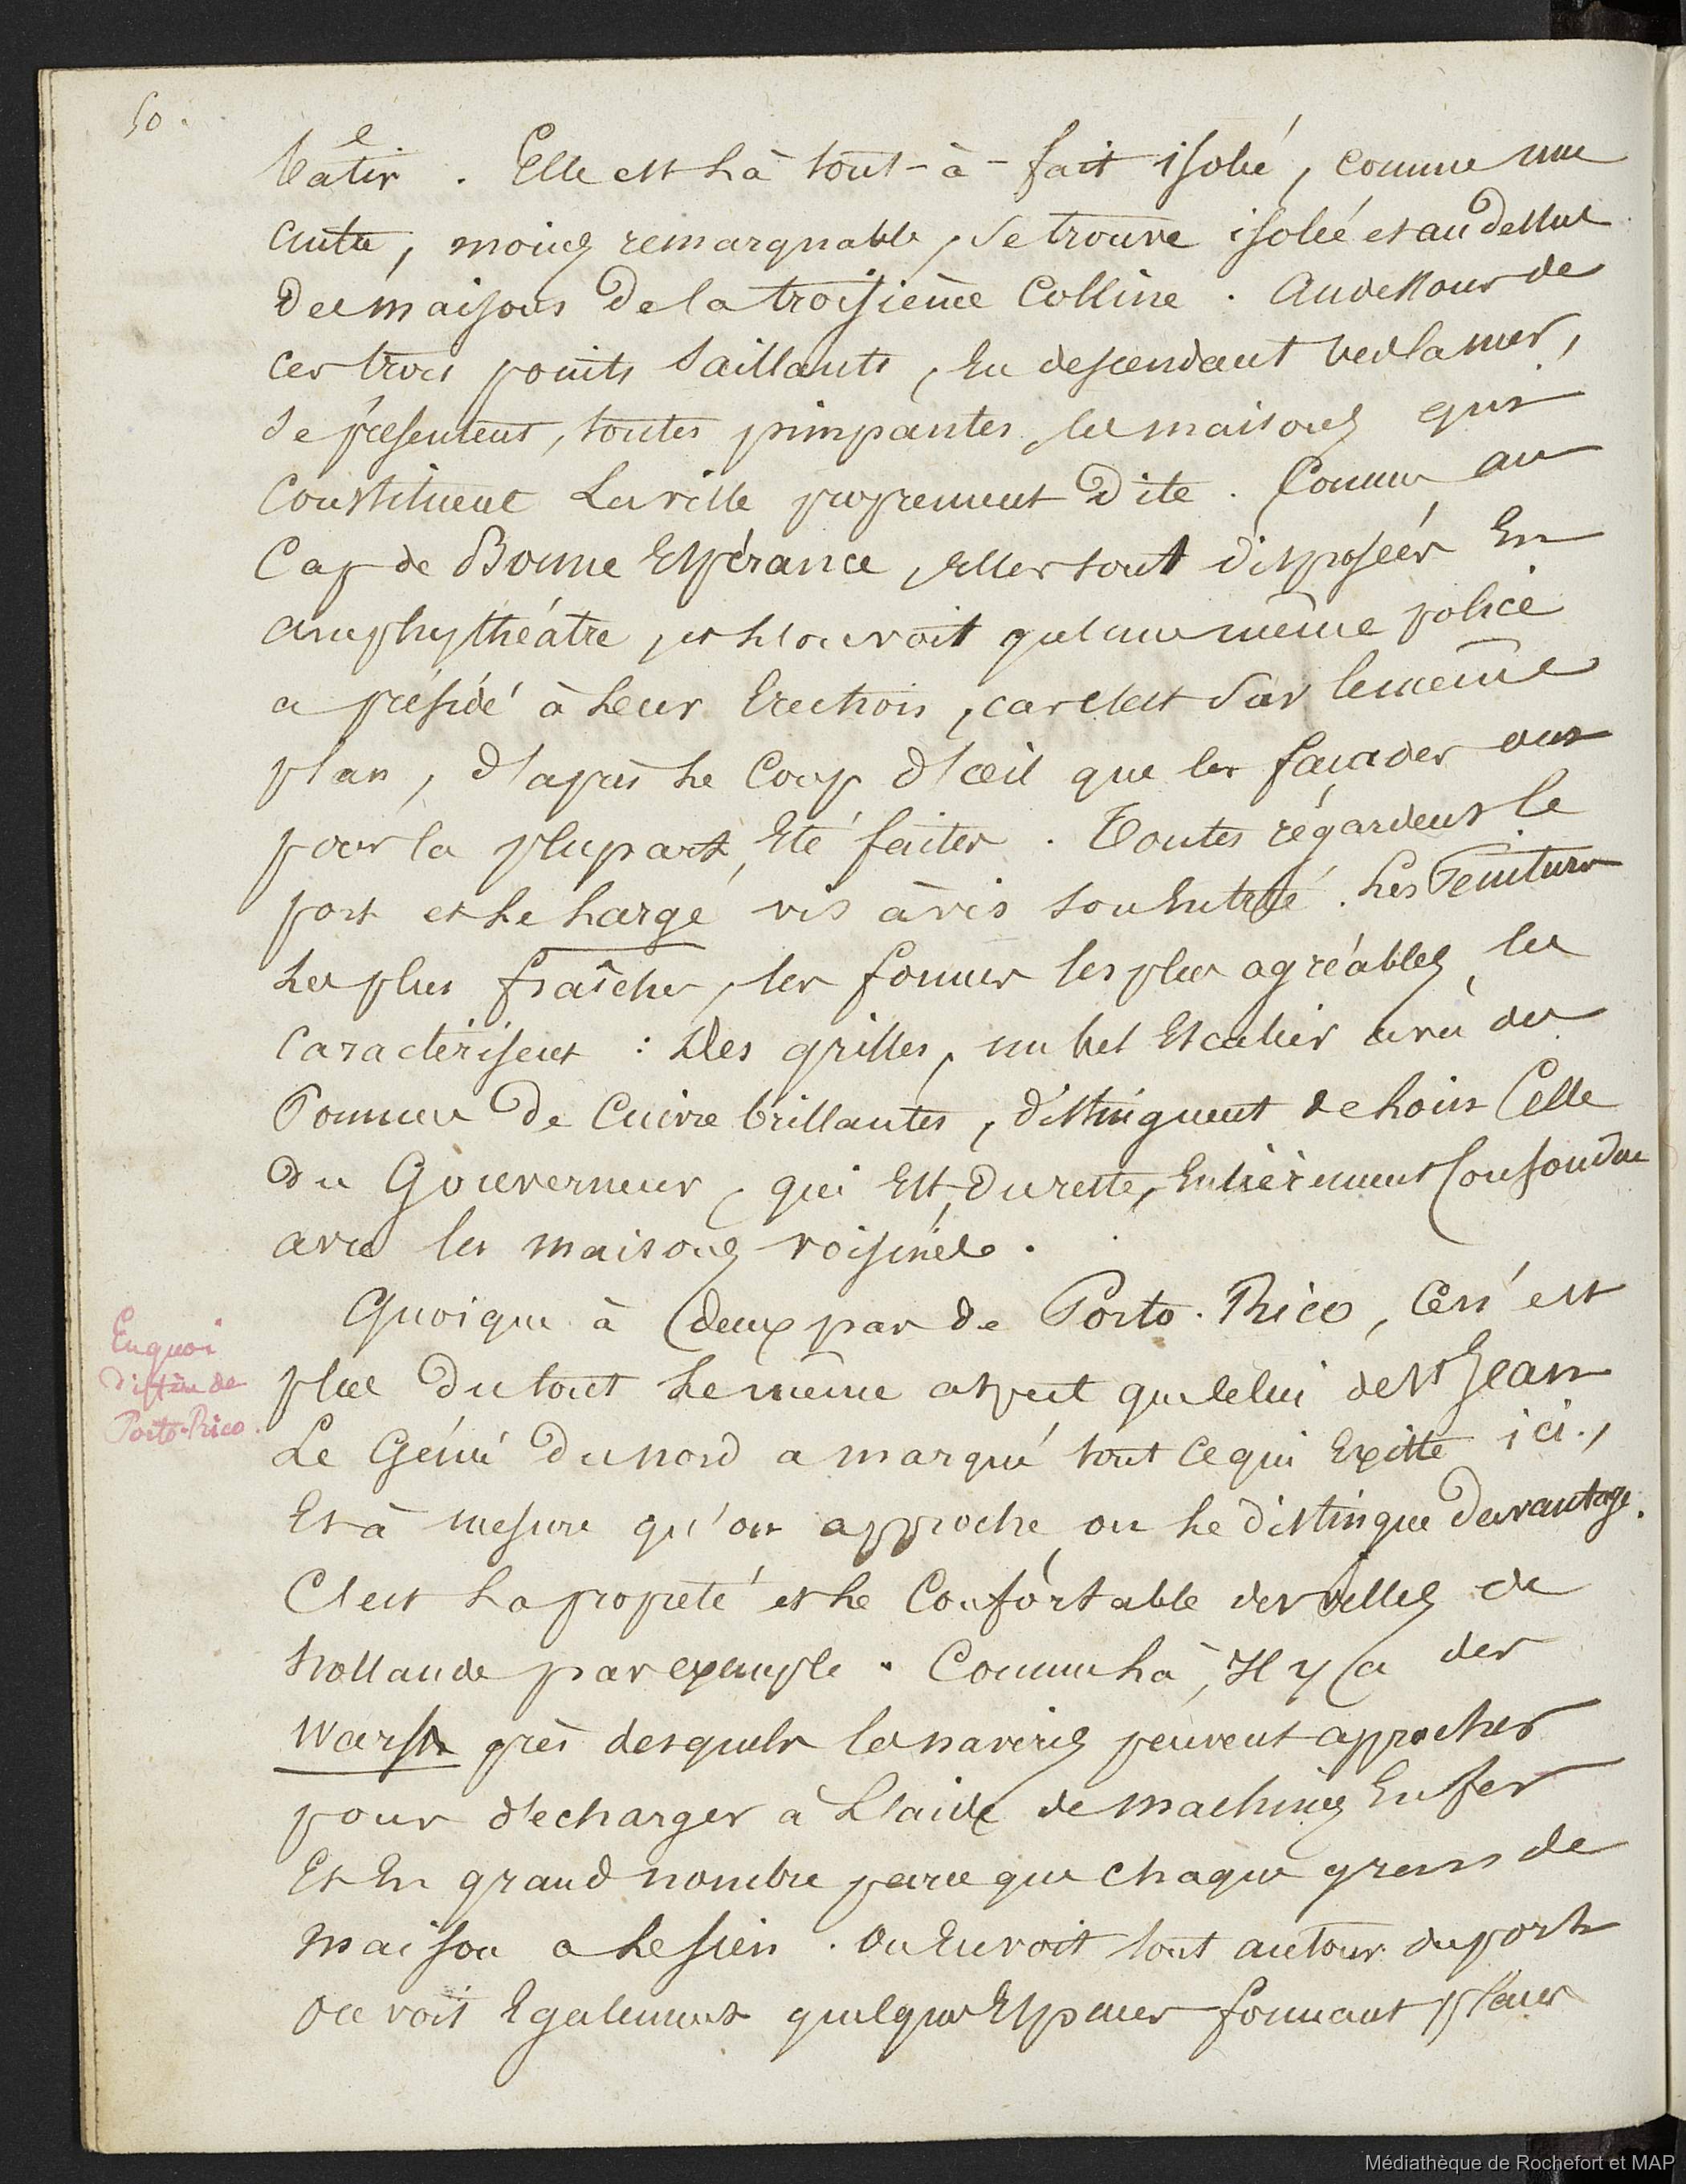 50.
bâtir. Elle est là tout-à-fait isolée, comme une
autre, moins remarquable, se trouve isolée et au dessus
des maisons de la troisième Colline. Au dessous de
ces trois points saillants, En descendant vers la mer,
se présentent, toutes pimpantes, les maisons qui
Constituent La ville proprement dite. Comme au
Cap de Bonne Espérance, elles sont disposées En
amphythéâtre, et l'on voit qu'une même police
a présidé à leur Erection, car c'est sur le même
plan, d'après le Coup d'œil que les façades ont
pour la plupart, Eté faites. Toutes regardent le
port et le large vis à vis son Entrée. Les Peintures
les plus fraîches, les formes les plus agréables, les
Caractérisent : Des grilles, un bel Escalier avec des
Pommes de Cuivre brillantes, distinguent de loin Celle
du Gouverneur, qui Est, du reste, Entièrement Confondue
avec les maisons voisines.
Quoique à deux pas de Porto-Rico, Ce n'est
plus du tout le même aspect que celui de St Jean
Le Génie du nord a marqué tout ce qui Existe ici,
Et à mesure qu'on approche, on le distingue davantage.
C'est la propreté et le Confortable des villes de
hollande par exemple. Comme là, Il y a des
Warfs près desquels les navires peuvent approcher
pour décharger à L'aide de machines En fer
Et En grand nombre parce que chaque genre de
maison a le sien. On En voit tout autour du port
On voit Egalement quelques Espaces formant places
En quoi
diffère de
Porto-Rico.
Médiathèque de Rochefort et MAP